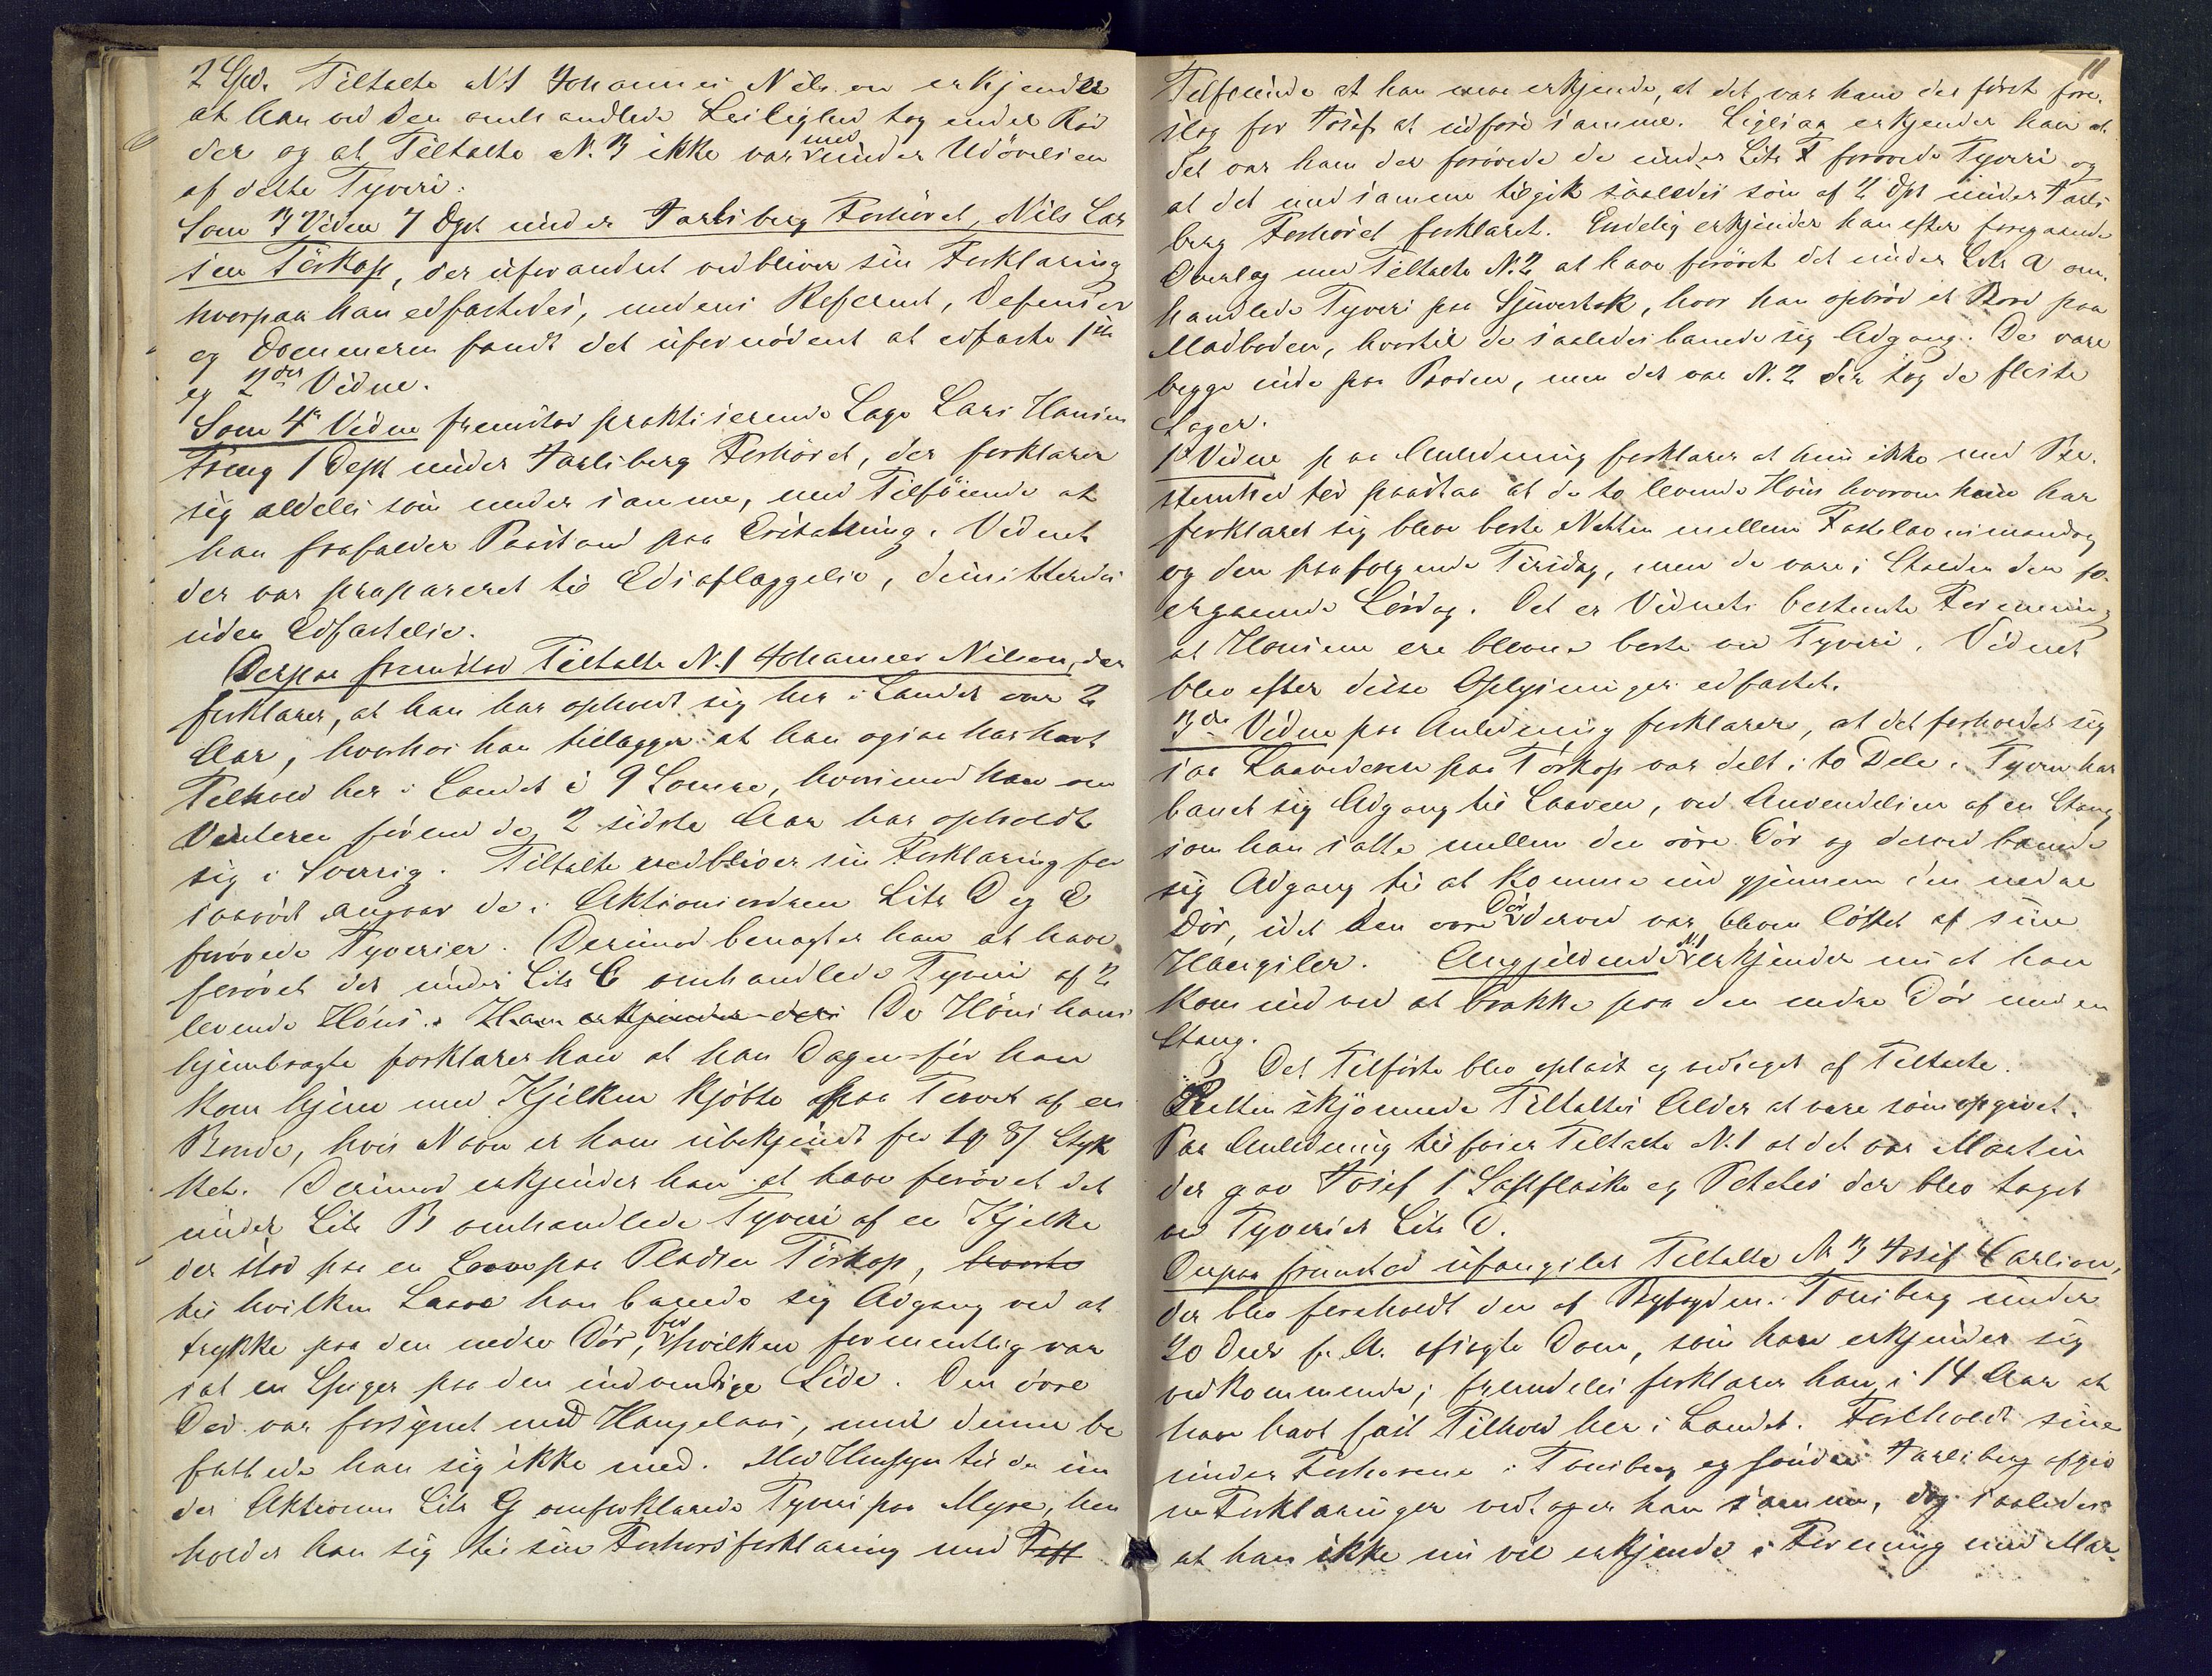 2 Spd. Tiltalte N.1 Johannes Nilson erkjender
at han ved den omhandlede Leilighed tog endel Kød
der og at Tiltalte N. 3 ikke var med under Udövelsen
af dette Tyveri.
Som 3 Vidne 7 Dpt under Jarlsberg Forhöret, Nils Lar
sen Törkop, der uforandret vedbliver sin Forklaring
hvorpaa han edfæstedes, medens Referent, Defensor
og Dommeren fandt det ufornödent at edfæste 1ste
og 2det Vidne.
Som 4de Vidne fremstod praktiserende Læge Lars Hansen
1 Dept under Jarlsberg Forhöret, der forklarer
sig aldeles som under samme, med Tilföiende at
han frafalder Paastand paa Erstatning. Vidnet
der var præpareret til Edsaflæggelse, dimitteredes
uden Edfæstelse.
Derpaa fremstod Tiltalte N.1 Johannes Nilson, der
forklarer, at han har opholdt sig her i Landet over 2
Aar, hvorhos han tillægger at han ogsaa har havt
Tilhold her i Landet i 9 Somre, hvorimod han om
Vinteren förend de 2 sidste Aar har opholdt
sig i Sverrig. Tiltalte vedbliver sin Forklaring for
saavidt angaar de i Aktionsordren Litr D og E
forövede Tyverier. Derimod benægter han at have
forövet det under Litr C omhandlede Tyveri af 2
levende Höns. Han erkjender des De Höns han
hjembragte forklarer han at han Dagen för han
kom hjem med Kjelken kjöbte paa Torvet af en
Bonde, hvis Navn er ham ubekjendt for 1 8 Styk
ket. Derimod erkjender han at have forövet det
under Litr B omhandlede Tyveri af en Kjelke
der stod paa en Laave paa Pladsen Törkop, hvorto
til hvilken Laave han banede sig Adgang ved at
trykke paa den nedre Dör, for hvilken formentlig var
sat en Spiger paa den indvendige Side. Den övre
Dör var forsynet med Hængelaas, med denne be
fattede han sig ikke med. Med Hensyn til de un
der Aktionens Litr G omforklarede Tyveri paa Myre, hen
holder han sig til sin Forhørsforklaring med Tilf
11
Tilföiende at han maa erkjende, at det var ham der först fore
slog for Josef at udföre samme. Ligesaa erkjender han at
det var ham der forövede de under Litr F forövede Tyveri og
at det med samme tilgik saaledes som af 2 Dpt under Jarls
berg Forhöret forklaret. Endelig erkjender han efter foregaaende
Overlæg med Tiltalte N.2 at have forövet det under Litr A om
handlede Tyveri paa Sjuestok, hvor han opbröd et Bord paa
Madboden, hvortil de saaledes banede sig Adgang. De vare
begge inde paa Boden, men det var N.2 der tog de fleste
Sager.
1ste Vidne paa Anledning forklarer at hun ikke med Be
stemthed tör paastaa at de to levende Höns hvorom hun har
forklaret sig bleve borte Natten mellem Fastelavnsmandag
og den paafølgende Tirsdag, men de vare i Stalden den fo
regaaende Lördag. Det er Vidnets bestemte Formening
at Hönsene ere blevne borte ved Tyveri. Vidnet
blev efter disse Oplysninger edfæstet.
3die Vidne paa Anledning forklarer, at det forholder sig
saa Laavedören paa Törkop var delt i to Dele. Tyven har
banet sig Adgang til Laaven, ved Anvendelsen af en Stang
som han satte mellem den övre Dör og derved banede
sig Adgang til at komme ind gjennem den nedre
Dör, idet den övre Dör derved var bleven löftet af sine
Hængsler. Angjeldende N.1 erkjender nu at han
kom ind ved at brække paa den nedre Dör med en
Stang.
Det Tilförte blev oplæst og vedtaget af Tiltalte.
Retten skjönnede Tiltaltes Alder at være som opgivet.
Paa Anledning tilföier Tiltalte N.1 at det var Martin
der gav Josef 1 Saftflaske og Poteter der blev taget
ved Tyveriet Litr D.
Derpaa fremstod ufængslet Tiltalte N. 3 Josef Carlson,
der blev foreholdt den af Byfogden i Tönsberg under
20 Decbr f. A. afsagte Dom, som han erkjender sig
vedkommende; fremdeles forklarer han i 14 Aar at
have havt fast Tilhold her i Landet. Foreholdt sine
under Forhörene i Tönsberg og söndre Jarlsberg afgiv
ne Forklaringer vedtager han samme, dog saaledes
at han ikke nu vil erkjende i Forening med Mar-